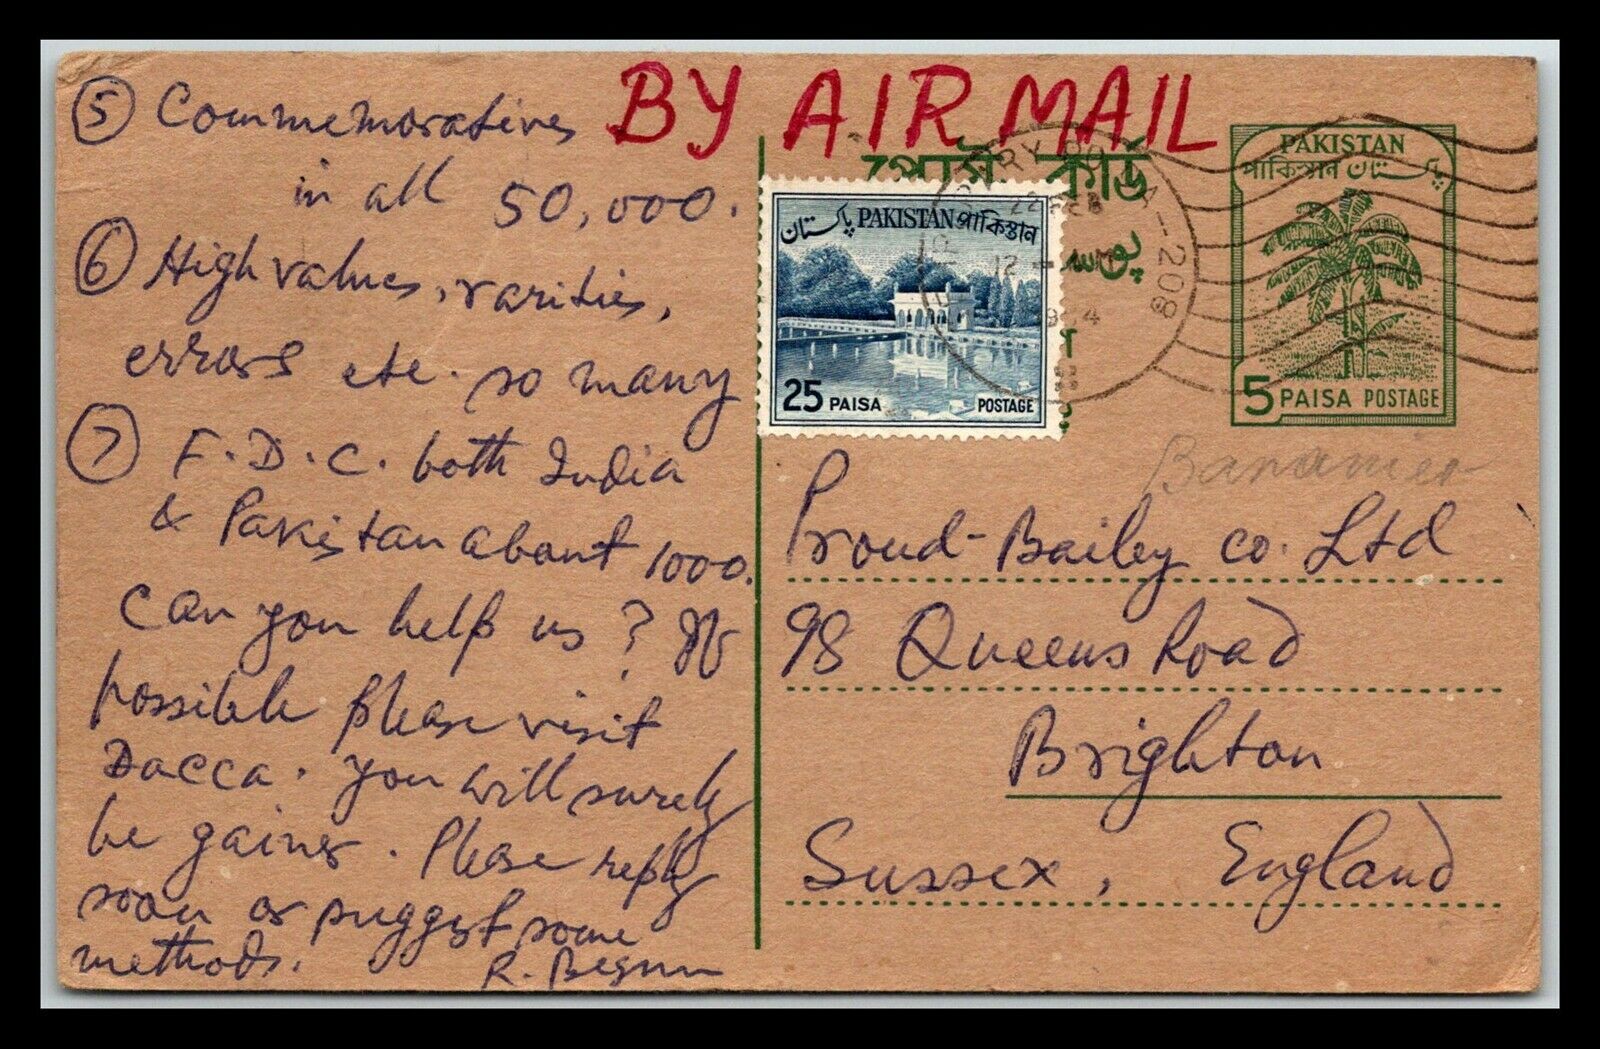 BY AIR MAIL
⑤ Commemoratives
in all 50,000.
⑥ High values, rarities,
errors etc. so many
⑦ F.D.C. both India
& Pakistan about 1000.
Can you help us? If
possible please visit
Dacca. You will surely
be gainer. Please reply
soon or suggest some
methods.
R. Begum
পোস্ট কার্ড
پاکستان PAKISTAN পাকিস্তান
25 PAISA POSTAGE
22 FEB
12
A--208
PAKISTAN
পাকিস্তান پاکستان
5 PAISA POSTAGE
Proud-Bailey Co. Ltd
98 Queens Road
Brighton
Sussex, England